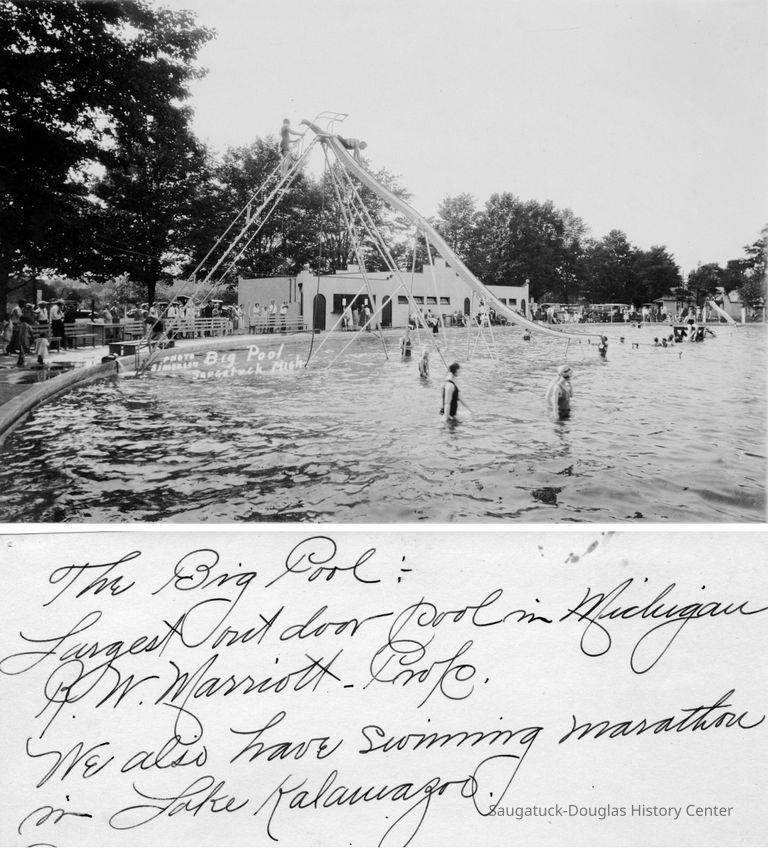 PHOTO
SIMONSON
Big Pool
Saugatuck Mich
The Big Pool :-
Largest out door pool in Michigan
R. W. Marriott - Prop.
We also have swimming marathon
in Lake Kalamazoo.
Saugatuck-Douglas History Center